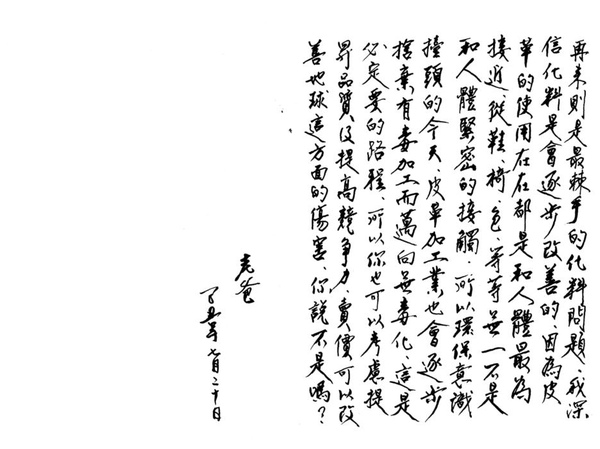 再來則是最棘手的化料問題、我深
信化料是會逐步改善的、因為皮
革的使用在在都是和人體最為
接近、從鞋、椅、包、等等無一不是
和人體緊密的接觸、所以環保意識
擡頭的今天、皮革加工業也會逐步
捨棄有毒加工而邁向無毒化、這是
必定要的路程、所以你也可以考慮提
昇品質及提高競争力、賣價可以改
善地球這方面的傷害、你說不是嗎？
老爸
丁丑年七月二十日